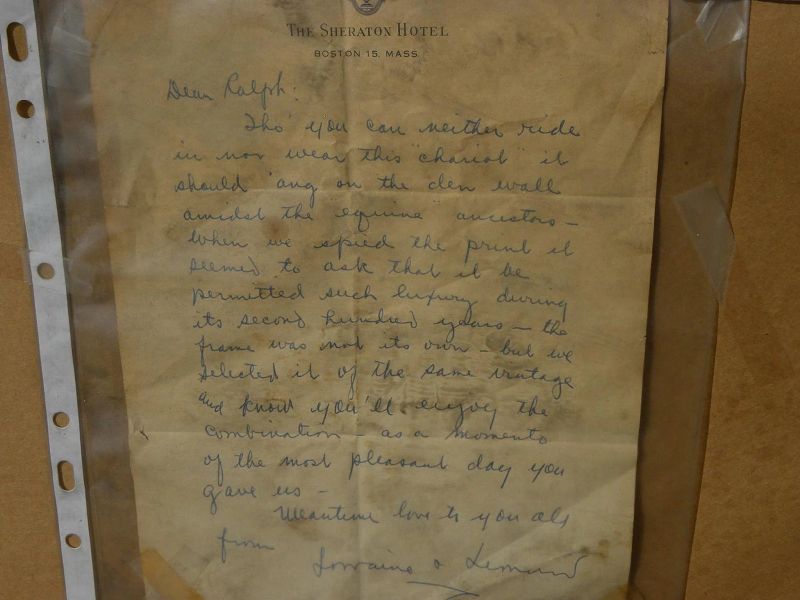 THE SHERATON HOTEL
BOSTON 15, MASS.
Dear Ralph:
Tho' you can neither ride
in nor wear this "chariot" it
should 'ang on the den wall
amidst the equine ancestors –
When we spied the print it
seemed to ask that it be
permitted such luxury during
its second hundred years – the
frame was not its own – but we
selected it of the same vintage
and know you'll enjoy the
combination – as a momento
of the most pleasant day you
gave us –
Meantime love to you all
from Lorraine &